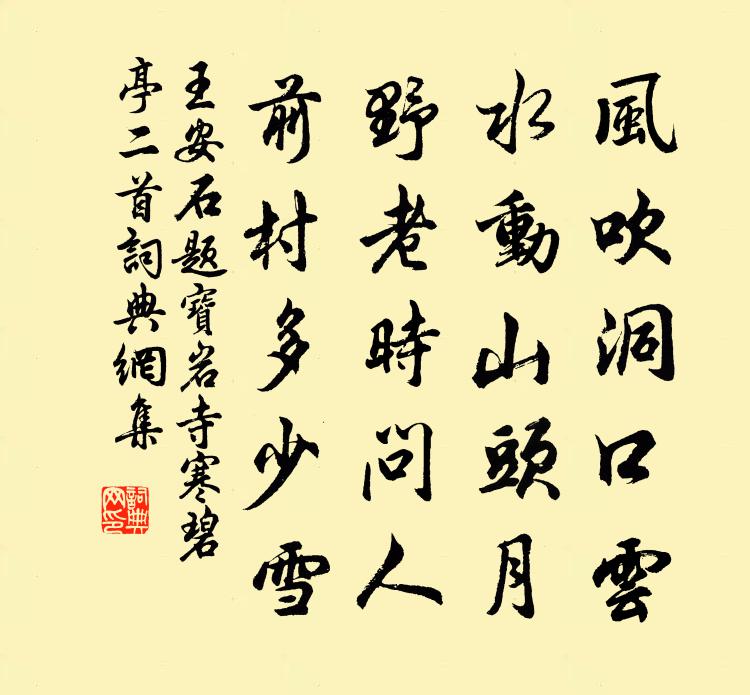 風吹洞口雲
水動山頭月
野老時問人
前村多少雪
王安石題寶岩寺寒碧
亭二首詞典網集
詞典網印